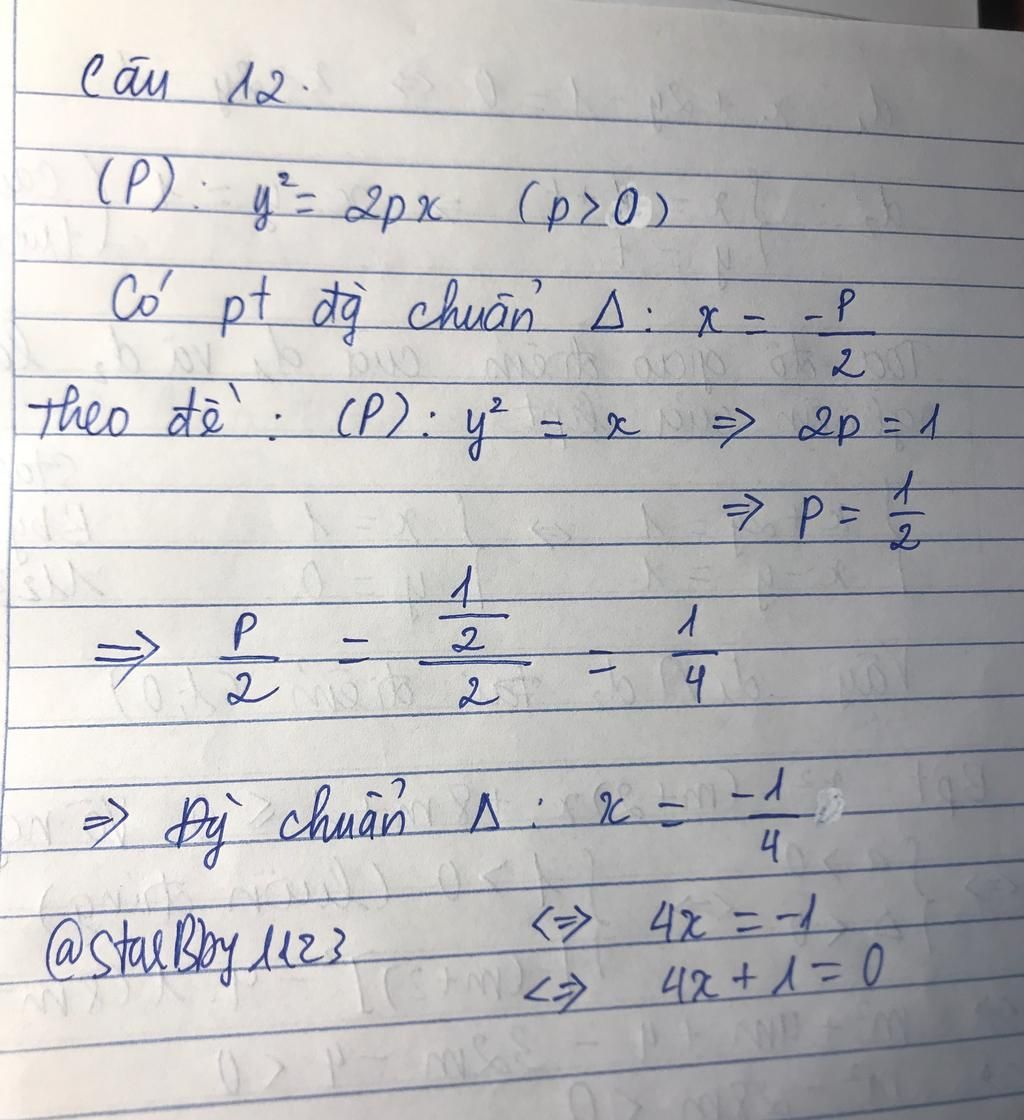 Câu 12.
(P): y² = 2px (p > 0)
Có pt đg̀ chuẩn Δ: x = -P/2
Theo đề: (P): y² = x => 2p = 1
=> P = 1/2
=> P/2 = (1/2)/2 = 1/4
=> Đg̀ chuẩn Δ: x = -1/4
@StarBby1123 <=> 4x = -1
<=> 4x + 1 = 0